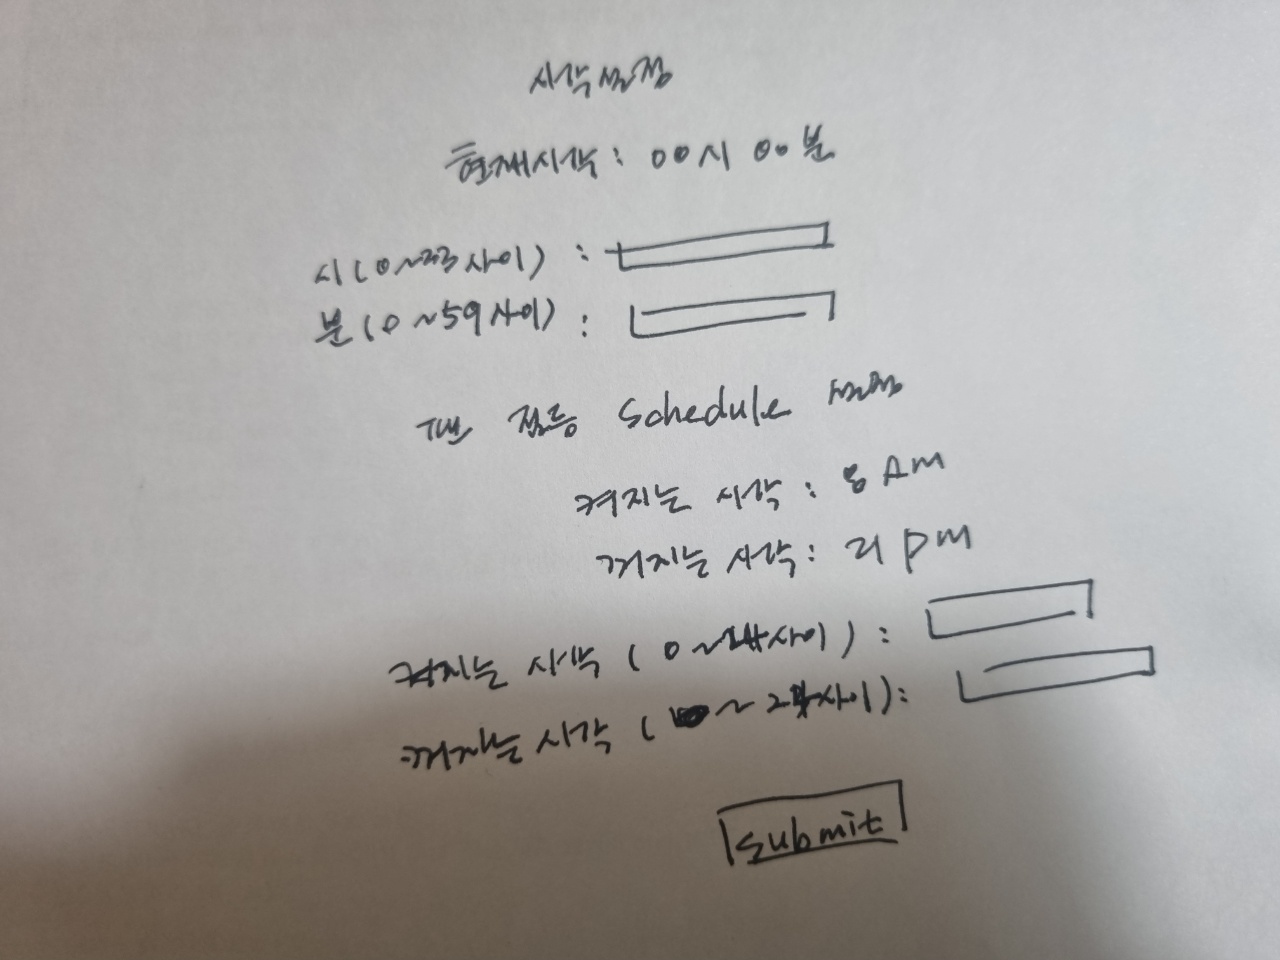 시각설정
현재시각 : 00시 00분
시(0~23 사이) :
분(0~59사이) :
점등 Schedule 설정
켜지는 시각 : 8 AM
꺼지는 시각 : 21 pm
켜지는 시각 (0~24사이) :
꺼지는 시각 ( ~ 24사이) :
Submit